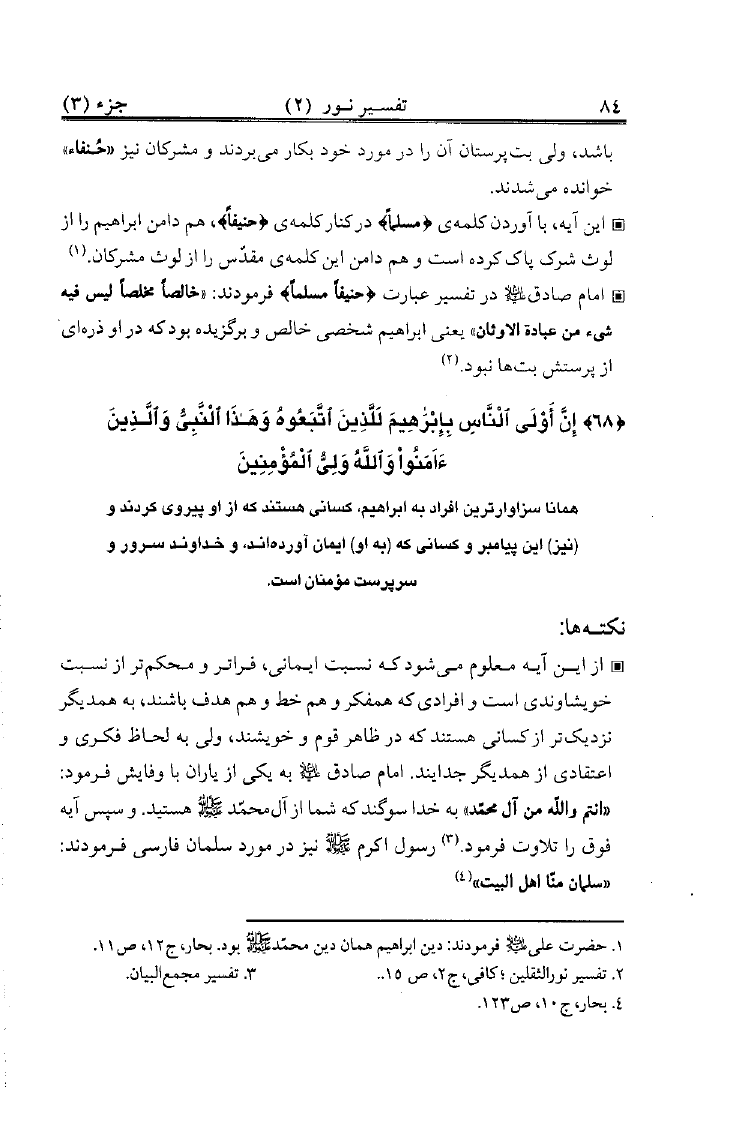 ٨٤ تفسیر نور (٢) جزء (٣)
باشد، ولی بت‌پرستان آن را در مورد خود بکار می‌بردند و مشرکان نیز «حُنفاء»
خوانده می‌شدند.
▣ این آیه، با آوردن کلمه‌ی ﴿مسلماً﴾ در کنار کلمه‌ی ﴿حنیفاً﴾، هم دامن ابراهیم را از
لوث شرک پاک کرده است و هم دامن این کلمه‌ی مقدّس را از لوث مشرکان.(١)
▣ امام صادق علیه‌السلام در تفسیر عبارت ﴿حنیفاً مسلماً﴾ فرمودند: «خالصاً مخلصاً لیس فیه
شیء من عبادة الاوثان» یعنی ابراهیم شخصی خالص و برگزیده بود که در او ذره‌ای
از پرستش بت‌ها نبود.(٢)
﴿٦٨﴾ إِنَّ أَوْلَى ٱلنَّاسِ بِإِبْرَٰهِيمَ لَلَّذِينَ ٱتَّبَعُوهُ وَهَـٰذَا ٱلنَّبِىُّ وَٱلَّذِينَ
ءَامَنُواْ وَٱللَّهُ وَلِىُّ ٱلْمُؤْمِنِينَ
همانا سزاوارترین افراد به ابراهیم، کسانی هستند که از او پیروی کردند و
(نیز) این پیامبر و کسانی که (به او) ایمان آورده‌اند، و خداوند سرور و
سرپرست مؤمنان است.
نکته‌ها:
▣ از این آیه معلوم می‌شود که نسبت ایمانی، فراتر و محکم‌تر از نسبت
خویشاوندی است و افرادی که همفکر و هم خط و هم هدف باشند، به همدیگر
نزدیک‌تر از کسانی هستند که در ظاهر قوم و خویشند، ولی به لحاظ فکری و
اعتقادی از همدیگر جدایند. امام صادق علیه‌السلام به یکی از یاران با وفایش فرمود:
«انتم واللّه من آل محمّد» به خدا سوگند که شما از آل‌محمّد ﷺ هستید. و سپس آیه
فوق را تلاوت فرمود.(٣) رسول اکرم ﷺ نیز در مورد سلمان فارسی فرمودند:
«سلمان منّا اهل البیت»(٤)
١. حضرت علی علیه‌السلام فرمودند: دین ابراهیم همان دین محمّد ﷺ بود. بحار، ج١٢، ص١١.
٢. تفسیر نورالثقلین ؛ کافی، ج٢، ص ١٥.. ٣. تفسیر مجمع‌البیان.
٤. بحار، ج١٠، ص١٢٣.